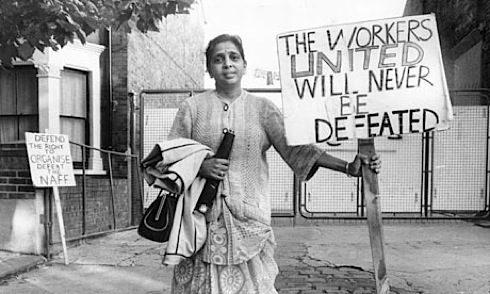 THE WORKERS
UNITED
WILL NEVER
BE
DEFEATED
DEFEND
THE RIGHT TO
ORGANISE
DEFEAT THE
NAFF